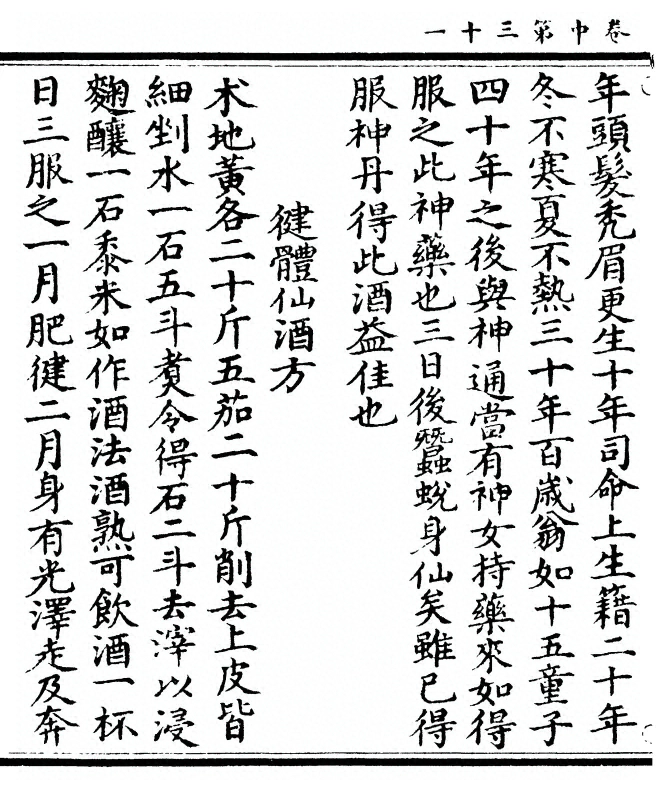 卷中第三十一
年頭髮秃眉更生十年司命上生籍二十年
冬不寒夏不熱三十年百歲翁如十五童子
四十年之後與神通當有神女持藥來如得
服之此神藥也三日後蠶蛻身仙矣雖已得
服神丹得此酒益佳也
健體仙酒方
朮地黃各二十斤五茄二十斤削去上皮皆
細剉水一石五斗煑令得石二斗去滓以浸
麴釀一石黍米如作酒法酒熟可飲酒一杯
日三服之一月肥健二月身有光澤走及奔